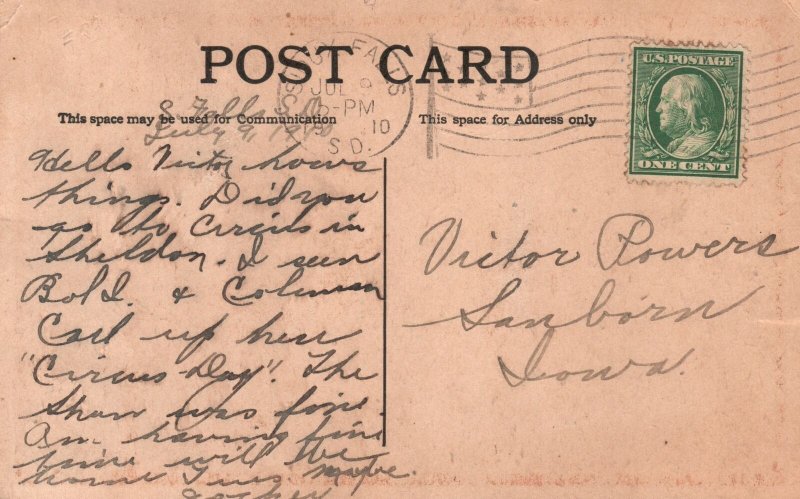 POST CARD
SIOUX FALLS
JUL 9
-PM
1910
S.D.
U.S. POSTAGE
ONE CENT
This space may be used for Communication
This space for Address only
S. Falls S.D.
July 9, 1910
Hello Victor hows
things. Did you
go to Circus in
Sheldon. I seen
Bob I. & Coleman
Carl up here
"Circus Day". The
Show was fine.
Am having fine
time will be
home Tues maybe.
Victor Powers
Sanborn
Iowa.